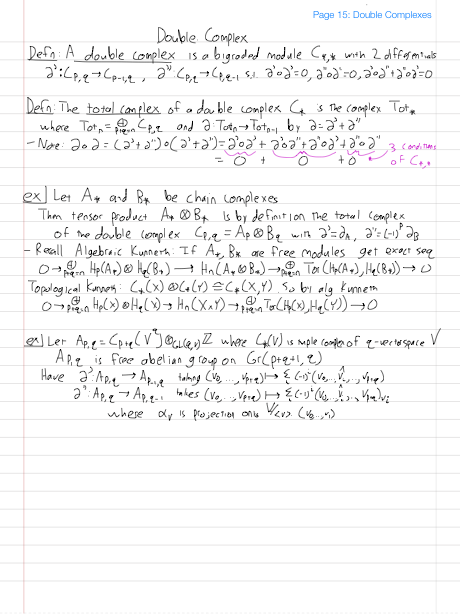 Page 15: Double Complexes
Double Complex
Defn: A double complex is a bigraded module C*,* with 2 differentials
∂':Cp,q→Cp-1,q , ∂'':Cp,q→Cp,q-1 s.t. ∂'∘∂'=0, ∂''∘∂''=0, ∂'∘∂''+∂''∘∂'=0
Defn: The total complex of a double complex C* is the complex Tot*
where Totn = ⊕p+q=n Cp,q and ∂:Totn→Totn-1 by ∂=∂'+∂''
- Note: ∂∘∂ = (∂'+∂'')∘(∂'+∂'')=∂'∘∂'+∂'∘∂''+∂''∘∂'+∂''∘∂''
= 0 + 0 + 0 3 conditions of C*,*
ex] Let A* and B* be chain complexes
Then tensor product A*⊗B* is by definition the total complex
of the double complex Cp,q = Ap⊗Bq with ∂'=∂A, ∂''=(-1)^p ∂B
- Recall Algebraic Kunneth: If A*, B* are free modules get exact seq
0→⊕p+q=n Hp(A*)⊗Hq(B*)→Hn(A*⊗B*)→⊕ Tor(Hp(A*),Hq(B*))→0
Topological Kunneth: C*(X)⊗C*(Y)≅C*(X,Y). So by alg Kunneth
0→⊕p+q=n Hp(X)⊗Hq(Y)→Hn(X×Y)→⊕ Tor(Hp(X),Hq(Y))→0
ex] Let Ap,q = Cp+q(V where C*(V) is complex of q-vectorspace V
Ap,q is free abelian group on Gr(p+q+1, q)
Have ∂':Ap,q→Ap-1,q taking (v0,...,vp+q)↦Σ(-1)^i(v0,...,v̂i,...,vp+q)
∂'':Ap,q→Ap,q-1 takes (v0,...,vp+q)↦Σ(-1)^i(v0,...,v̂i,...,vp+q)vi
where αv is projection onto V/<v>.